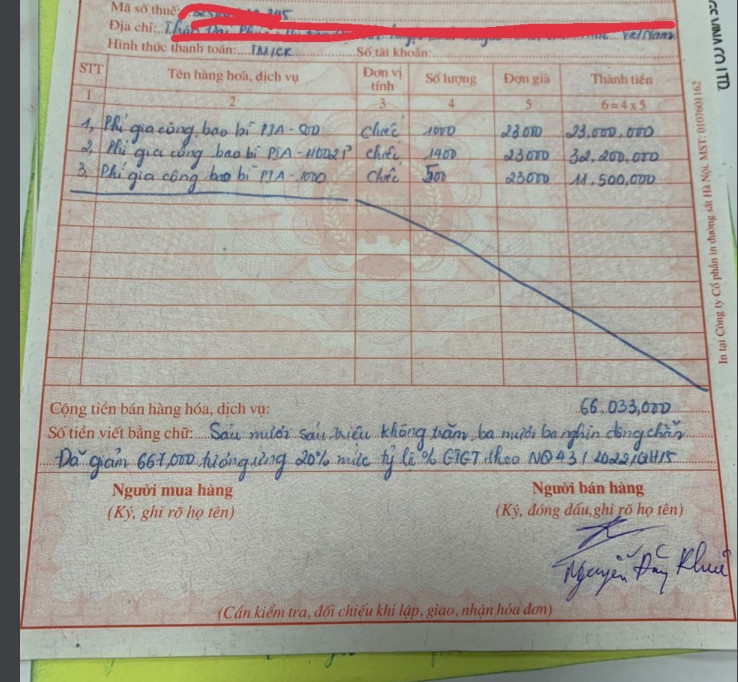 Mã số thuế:
Địa chỉ: Việt Nam
Hình thức thanh toán: TM/CK Số tài khoản:
STT Tên hàng hoá, dịch vụ Đơn vị tính Số lượng Đơn giá Thành tiền
1 2 3 4 5 6=4x5
1, Phí gia công bao bì PJA-500 chiếc 1000 23000 23.000.000
2, Phí gia công bao bì PJA- chiếc 1400 23000 32,200,000
3, Phí gia công bao bì PJA-1000 chiếc 500 23000 11.500,000
Cộng tiền bán hàng hóa, dịch vụ: 66.033,000
Số tiền viết bằng chữ: Sáu mươi sáu triệu không trăm ba mươi ba nghìn đồng chẵn
Đã giảm 667,000 tương ứng 20% mức tỷ lệ % GTGT theo NQ43/2022/QH15
Người mua hàng Người bán hàng
(Ký, ghi rõ họ tên) (Ký, đóng dấu, ghi rõ họ tên)
Nguyễn Khuê
(Cần kiểm tra, đối chiếu khi lập, giao, nhận hóa đơn)
In tại Công ty Cổ phần in đường sắt Hà Nội. MST: 0107601162
VINA CO LTD.